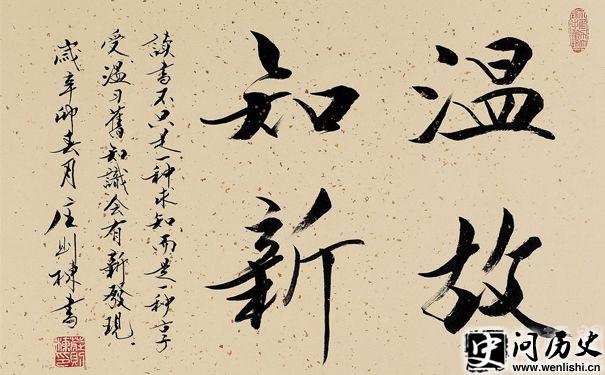 温故
知新
讀書不只是一种求知而是一种享
受温习舊知識会有新發現.
歲辛卯春月庄则棟書
问历史
www.wenlishi.cn